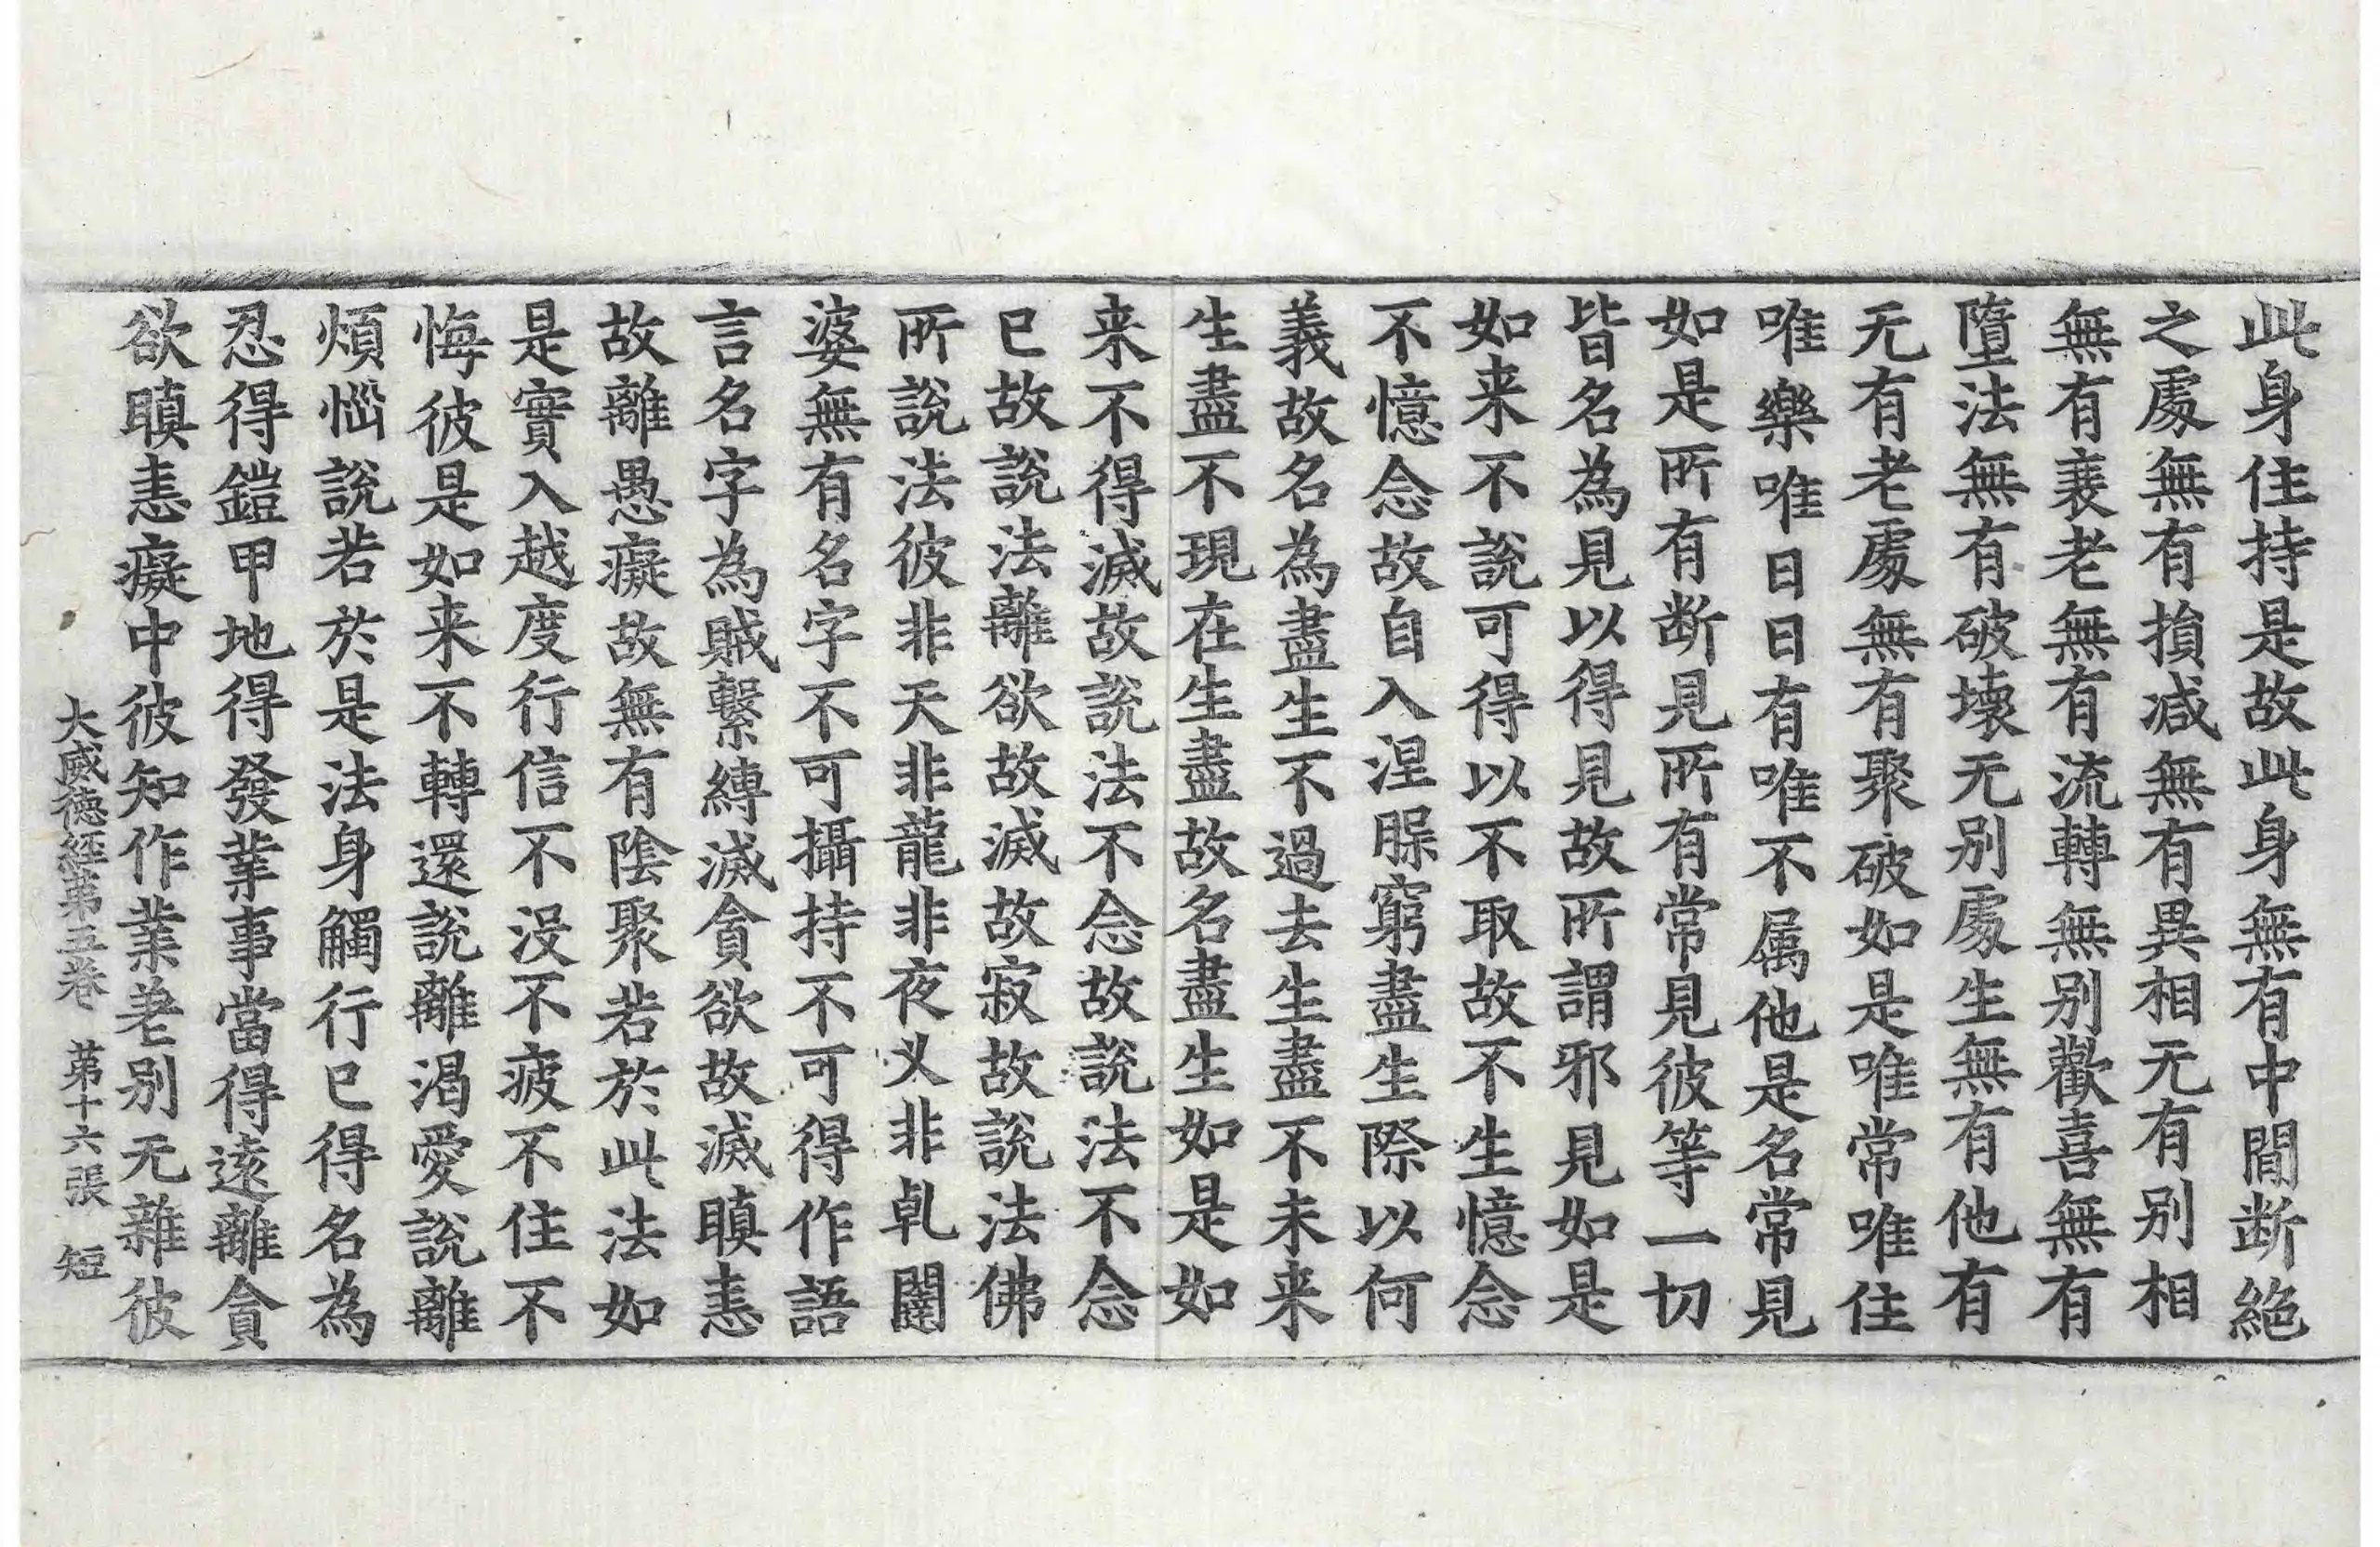 此身住持是故此身無有中間断絕
之處無有損减無有異相无有别相
無有衰老無有流轉無别歡喜無有
墮法無有破壞无别處生無有他有
无有老處無有聚破如是唯常唯住
唯樂唯日日有唯不属他是名常見
如是所有断見所有常見彼等一切
皆名為見以得見故所謂邪見如是
如来不說可得以不取故不生憶念
不憶念故自入涅槃窮盡生際以何
義故名為盡生不過去生盡不未来
生盡不現在生盡故名盡生如是如
来不得滅故說法不念故說法不念
已故說法離欲故滅故寂故說法佛
所說法彼非天非龍非夜叉非乹闥
婆無有名字不可攝持不可得作語
言名字為賊繫縛滅貪欲故滅瞋恚
故離愚癡故無有陰聚若於此法如
是實入越度行信不没不疲不住不
悔彼是如来不轉還說離渴愛說離
煩惱說若於是法身觸行已得名為
忍得鎧甲地得發業事當得遠離貪
欲瞋恚癡中彼知作業差别无雜彼
大威德経苐五卷 苐十六張 短